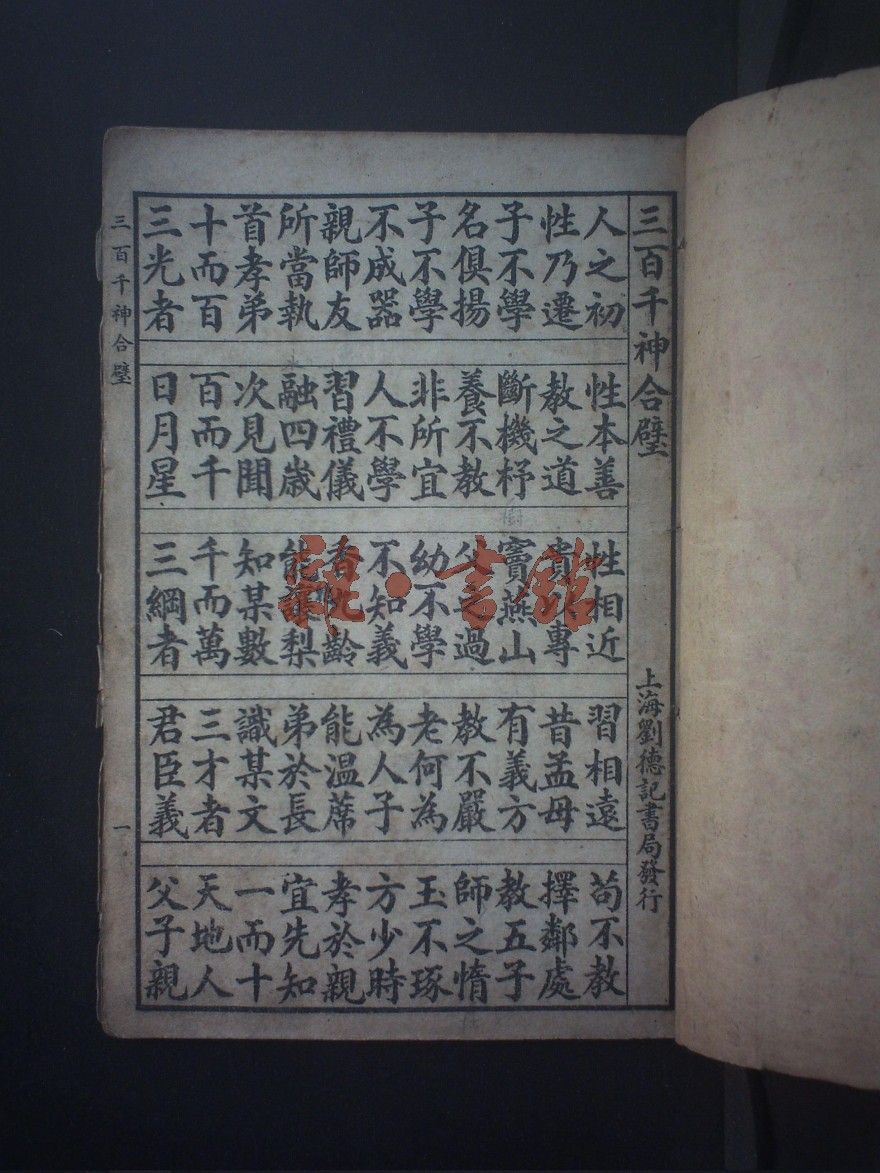 三百千神合璧 上海劉德記書局發行
人之初 性本善 性相近 習相遠 苟不教
性乃遷 教之道 貴以專 昔孟母 擇鄰處
子不學 斷機杼 竇燕山 有義方 教五子
名俱揚 養不教 父之過 教不嚴 師之惰
子不學 非所宜 幼不學 老何為 玉不琢
不成器 人不學 不知義 為人子 方少時
親師友 習禮儀 香九齡 能溫蓆 孝於親
所當執 融四歲 能讓梨 弟於長 宜先知
首孝弟 次見聞 知某數 識某文 一而十
十而百 百而千 千而萬 三才者 天地人
三光者 日月星 三綱者 君臣義 父子親
三百千神合璧 一
書館